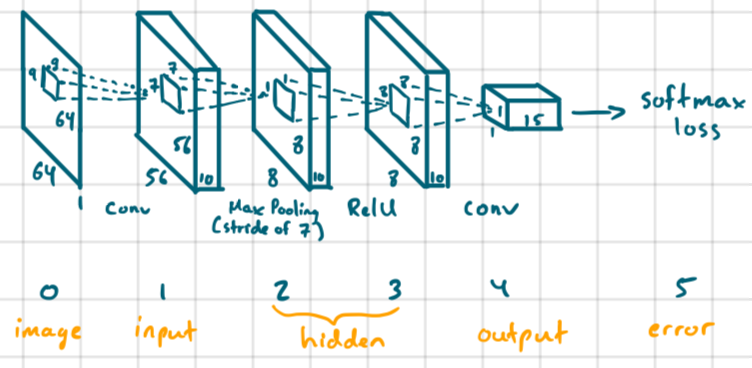 9 9
64
64
1
Conv
7
7
56
56
10
Max Pooling
(stride of 7)
1
1
8
8
10
ReLU
8
8
8
8
10
Conv
1
1
15
softmax
loss
0 1 2 3 4 5
image input hidden output error